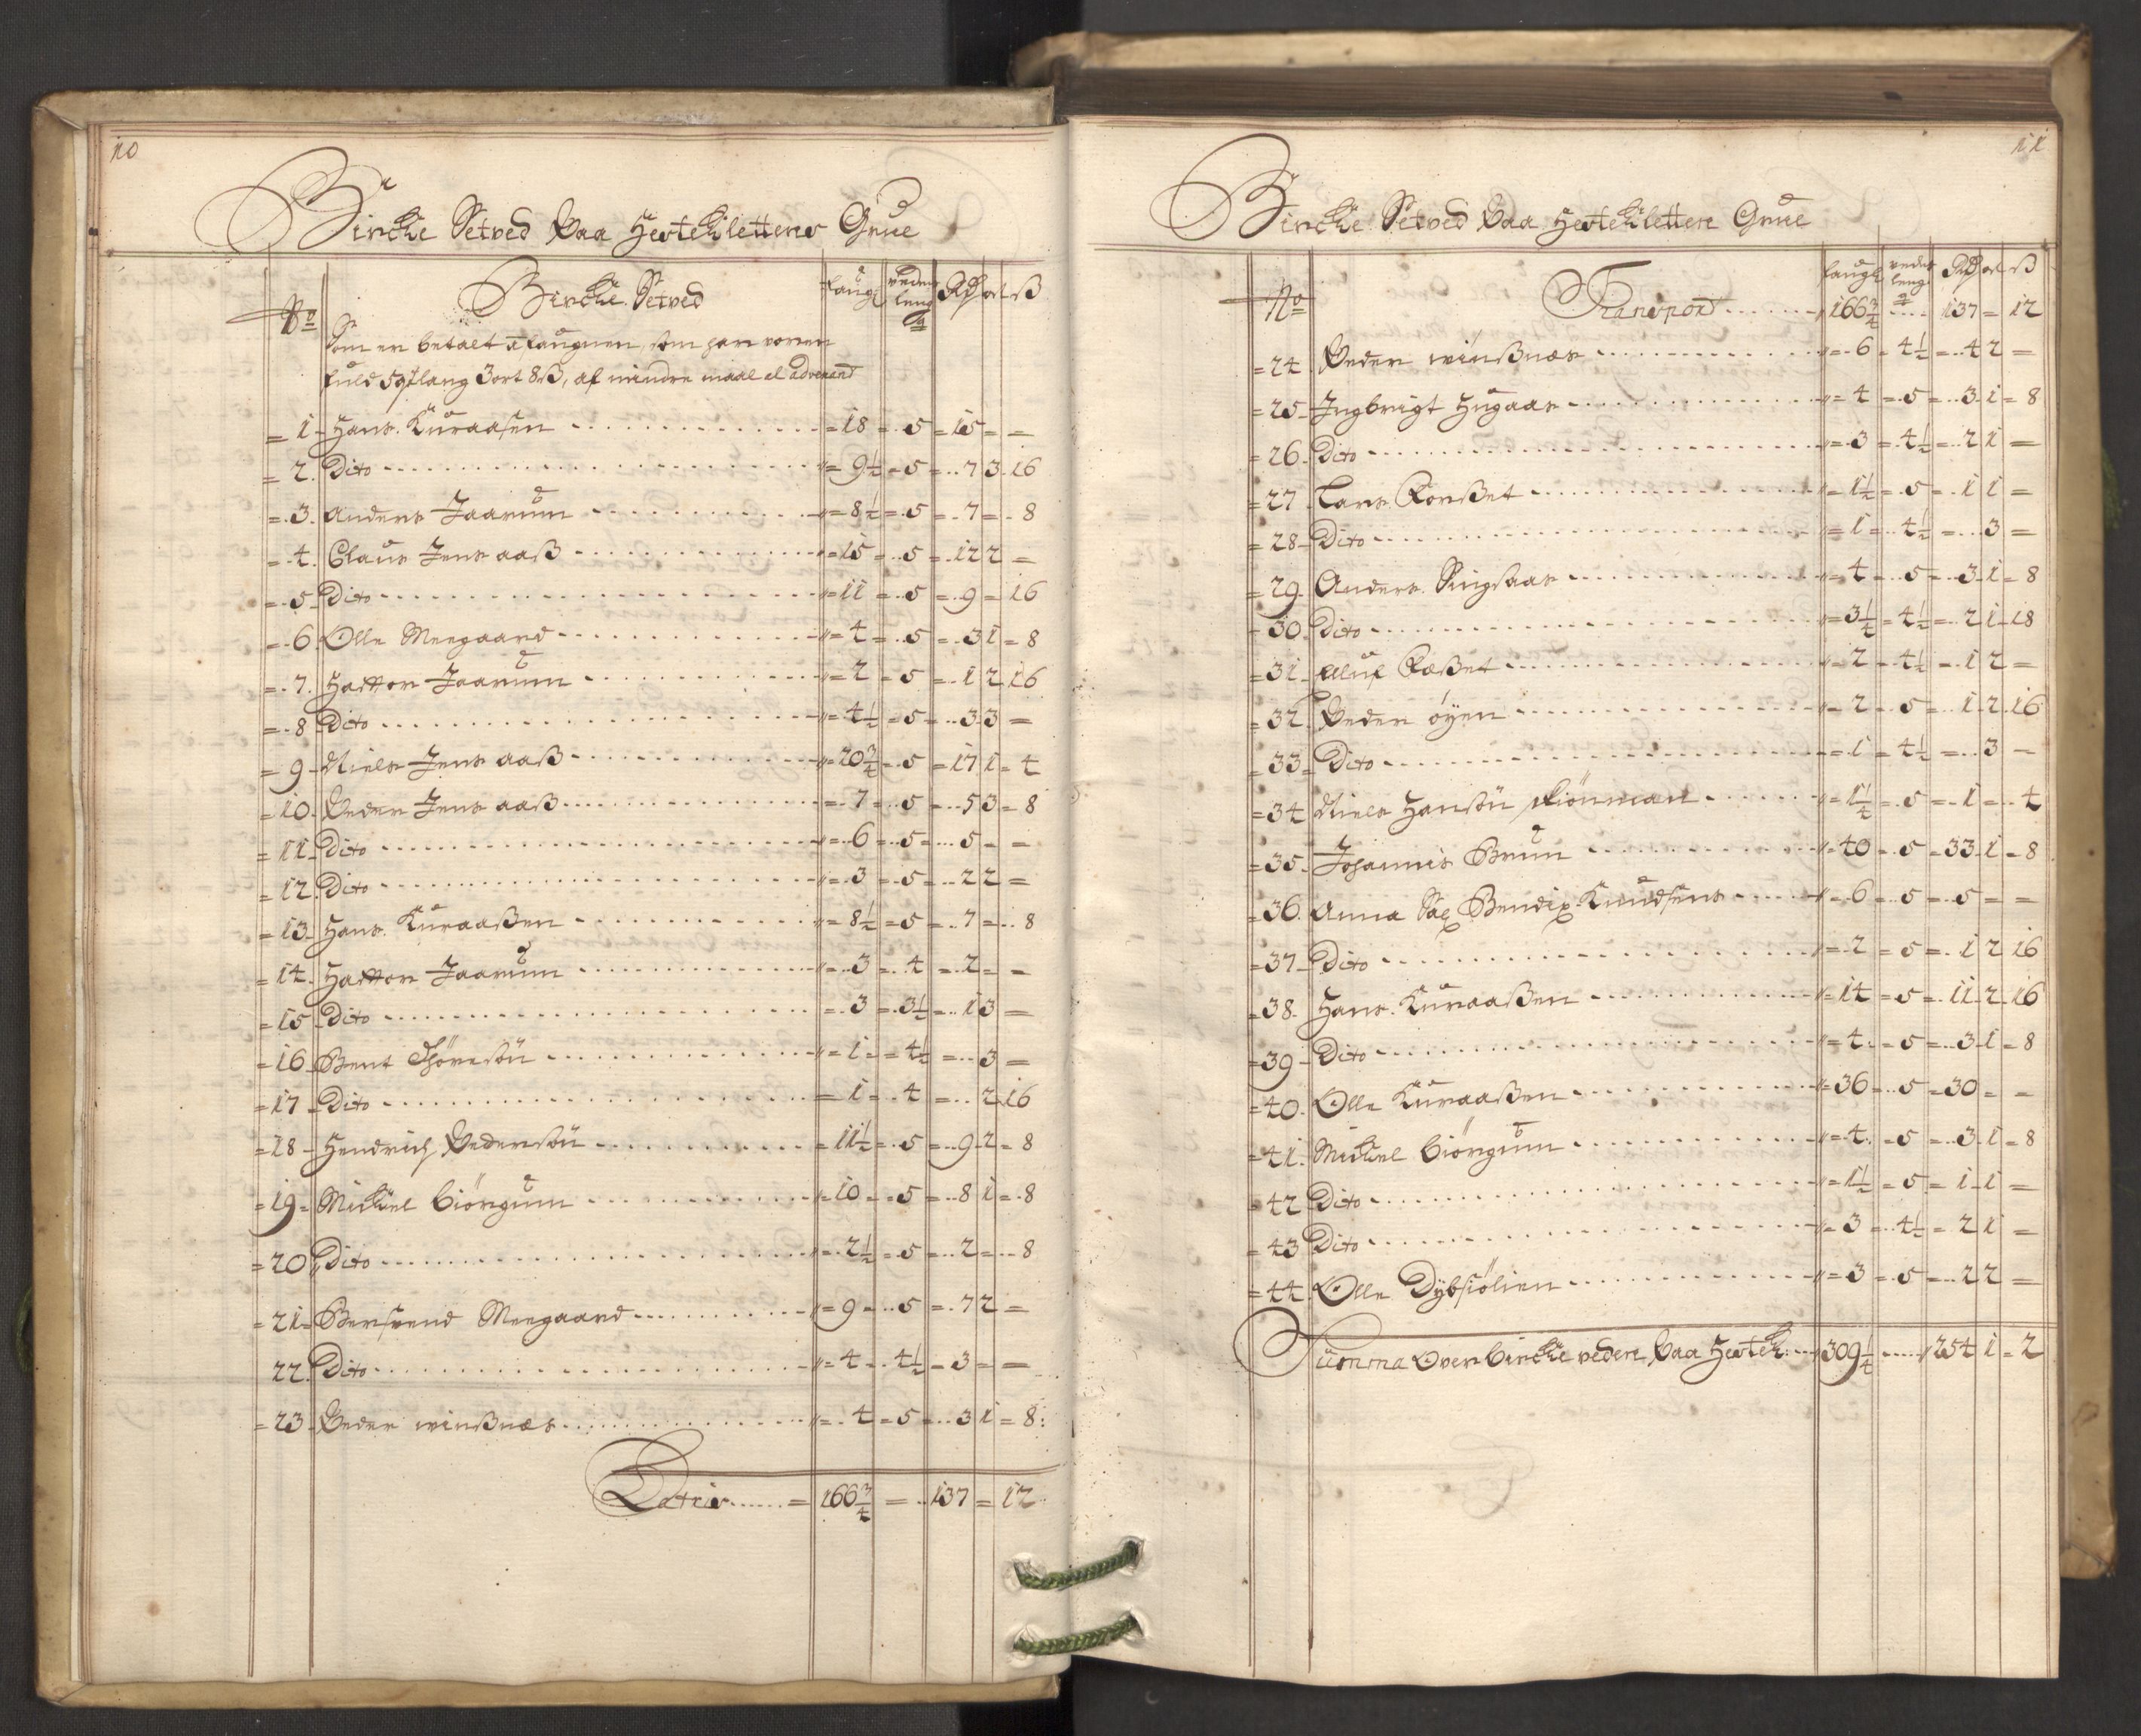 10
Bircke Setved Paa Hesteklettens Grue
No Bircke Setved faug veder leng q Rd ort ß
Som er betalt á faugnen, som har voren
fuld 5 q lang 3 ort 8 ß, af mindre maal el advenant
= 1 Hans Kuraasen = 18 = 5 = 15 = =
= 2 Dito = 9½ = 5 = 7 3 16
= 3 Anders Jaarum = 8½ = 5 = 7 = 8
= 4 Claus Jens aaß = 15 = 5 = 12 2 =
= 5 Dito = 11 = 5 = 9 = 16
= 6 Olle Meegaard = 4 = 5 = 3 1 = 8
= 7 Jaarum = 2 = 5 = 1 2 16
= 8 Dito = 4½ = 5 = 3 3 =
= 9 Niels Jens aaß = 20¾ = 5 = 17 1 = 4
= 10 Peder Jens aaß = 7 = 5 = 5 3 = 8
= 11 Dito = 6 = 5 = 5 = =
= 12 Dito = 3 = 5 = 2 2 =
= 13 Hans Kuraaßen = 8½ = 5 = 7 = 8
= 14 Jaarum = 3 = 4 = 2 = =
= 15 Dito = 3 = 3½ = 1 3 =
= 16 Bent = 1 = 4½ = 3 =
= 17 Dito = 1 = 4 = 2 16
= 18 Hendrich Pedersön = 11½ = 5 = 9 2 = 8
= 19 Mickel Giörgum = 10 = 5 = 8 1 = 8
= 20 Dito = 2½ = 5 = 2 = 8
= 21 Bersvend Meegaard = 9 = 5 = 7 2 =
22 Dito = 4 = 4½ = 3 = =
= 23 Peder winßnæs = 4 = 5 = 3 1 = 8
Latris = 166¾ = 137 = 12
11
Bircke Setved Paa Hesteklettens Grue
No faugl veder leng q Rd ort ß
Transport 166¾ 137 = 12
= 24 Peder winßnæs = 6 = 4½ = 4 2 =
= 25 Ingbrigt Hugaas = 4 = 5 = 3 1 = 8
= 26 Dito = 3 = 4½ = 2 1 =
= 27 Lars Korßet = 1½ = 5 = 1 1 =
= 28 Dito = 1 = 4½ = 3 =
= 29 Anders Singsaas = 4 = 5 = 3 1 = 8
= 30 Dito = 3¼ = 4½ = 2 1 18
= 31 Oluf = 2 = 4½ = 1 2 =
= 32 Peder öyen = 2 = 5 = 1 2 16
= 33 Dito = 1 = 4½ = 3 =
= 34 Niels Hansön = 1¼ = 5 = 1 = 4
= 35 Johannis Brun = 40 = 5 = 33 1 = 8
= 36 Anna Sal Bendix Knudsens = 6 = 5 = 5 = =
= 37 Dito = 2 = 5 = 1 2 16
= 38 Hans Kuraaßen = 14 = 5 = 11 2 16
= 39 Dito = 4 = 5 = 3 1 = 8
= 40 Olle Kuraaßen = 36 = 5 = 30 = =
= 41 Mickel Giörgum = 4 = 5 = 3 1 = 8
= 42 Dito = 1½ = 5 = 1 1 =
= 43 Dito = 3 = 4½ = 2 1 =
= 44 Olle Dybsiölien = 3 = 5 = 2 2 =
Summa Over bircke veden Paa Hestek: 309¼ 254 1 = 2